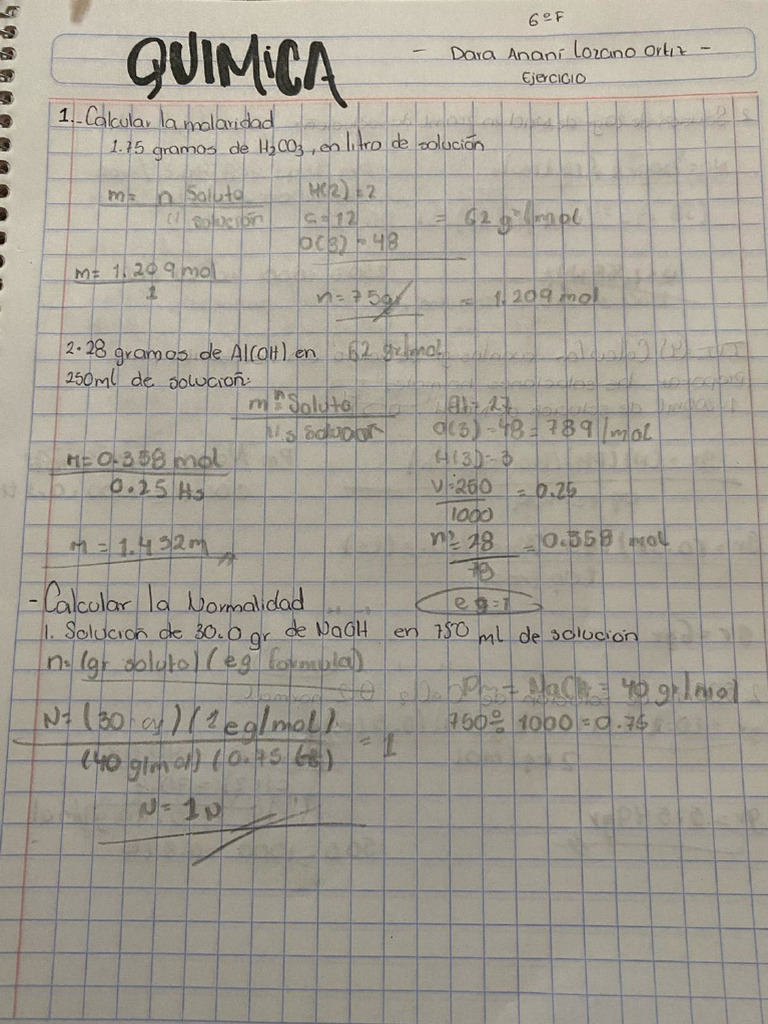 6ºF
QUIMiCA
- Dara Ananí Lozano Ortiz -
Ejercicio
1.- Calcular la molaridad
1.75 gramos de H₂CO₃, en litro de solución
m= n Soluto
solución
H(2)=2
C=12
O(3)=48
= 62 gr/mol
m= 1.209 mol
1
n=75gr
= 1.209 mol
2.28 gramos de Al(OH) en 62 gr/mol
250ml de solución:
m= n Soluto
Al=27
O(3)=48=789/mol
H(3)=3
m=0.358 mol
0.25
V=250
1000
= 0.25
m=1.432m
n= 28
78
=0.358 mol
- Calcular la Normalidad
eq=1
1. Solución de 30.0 gr de NaOH en 750 ml de solución
n= (gr soluto) (eg formula)
= 40 gr/mol
N= (30 gr) (1eg/mol)
(40 g/mol) (0.75
= 1
750÷ 1000=0.75
N= 1N